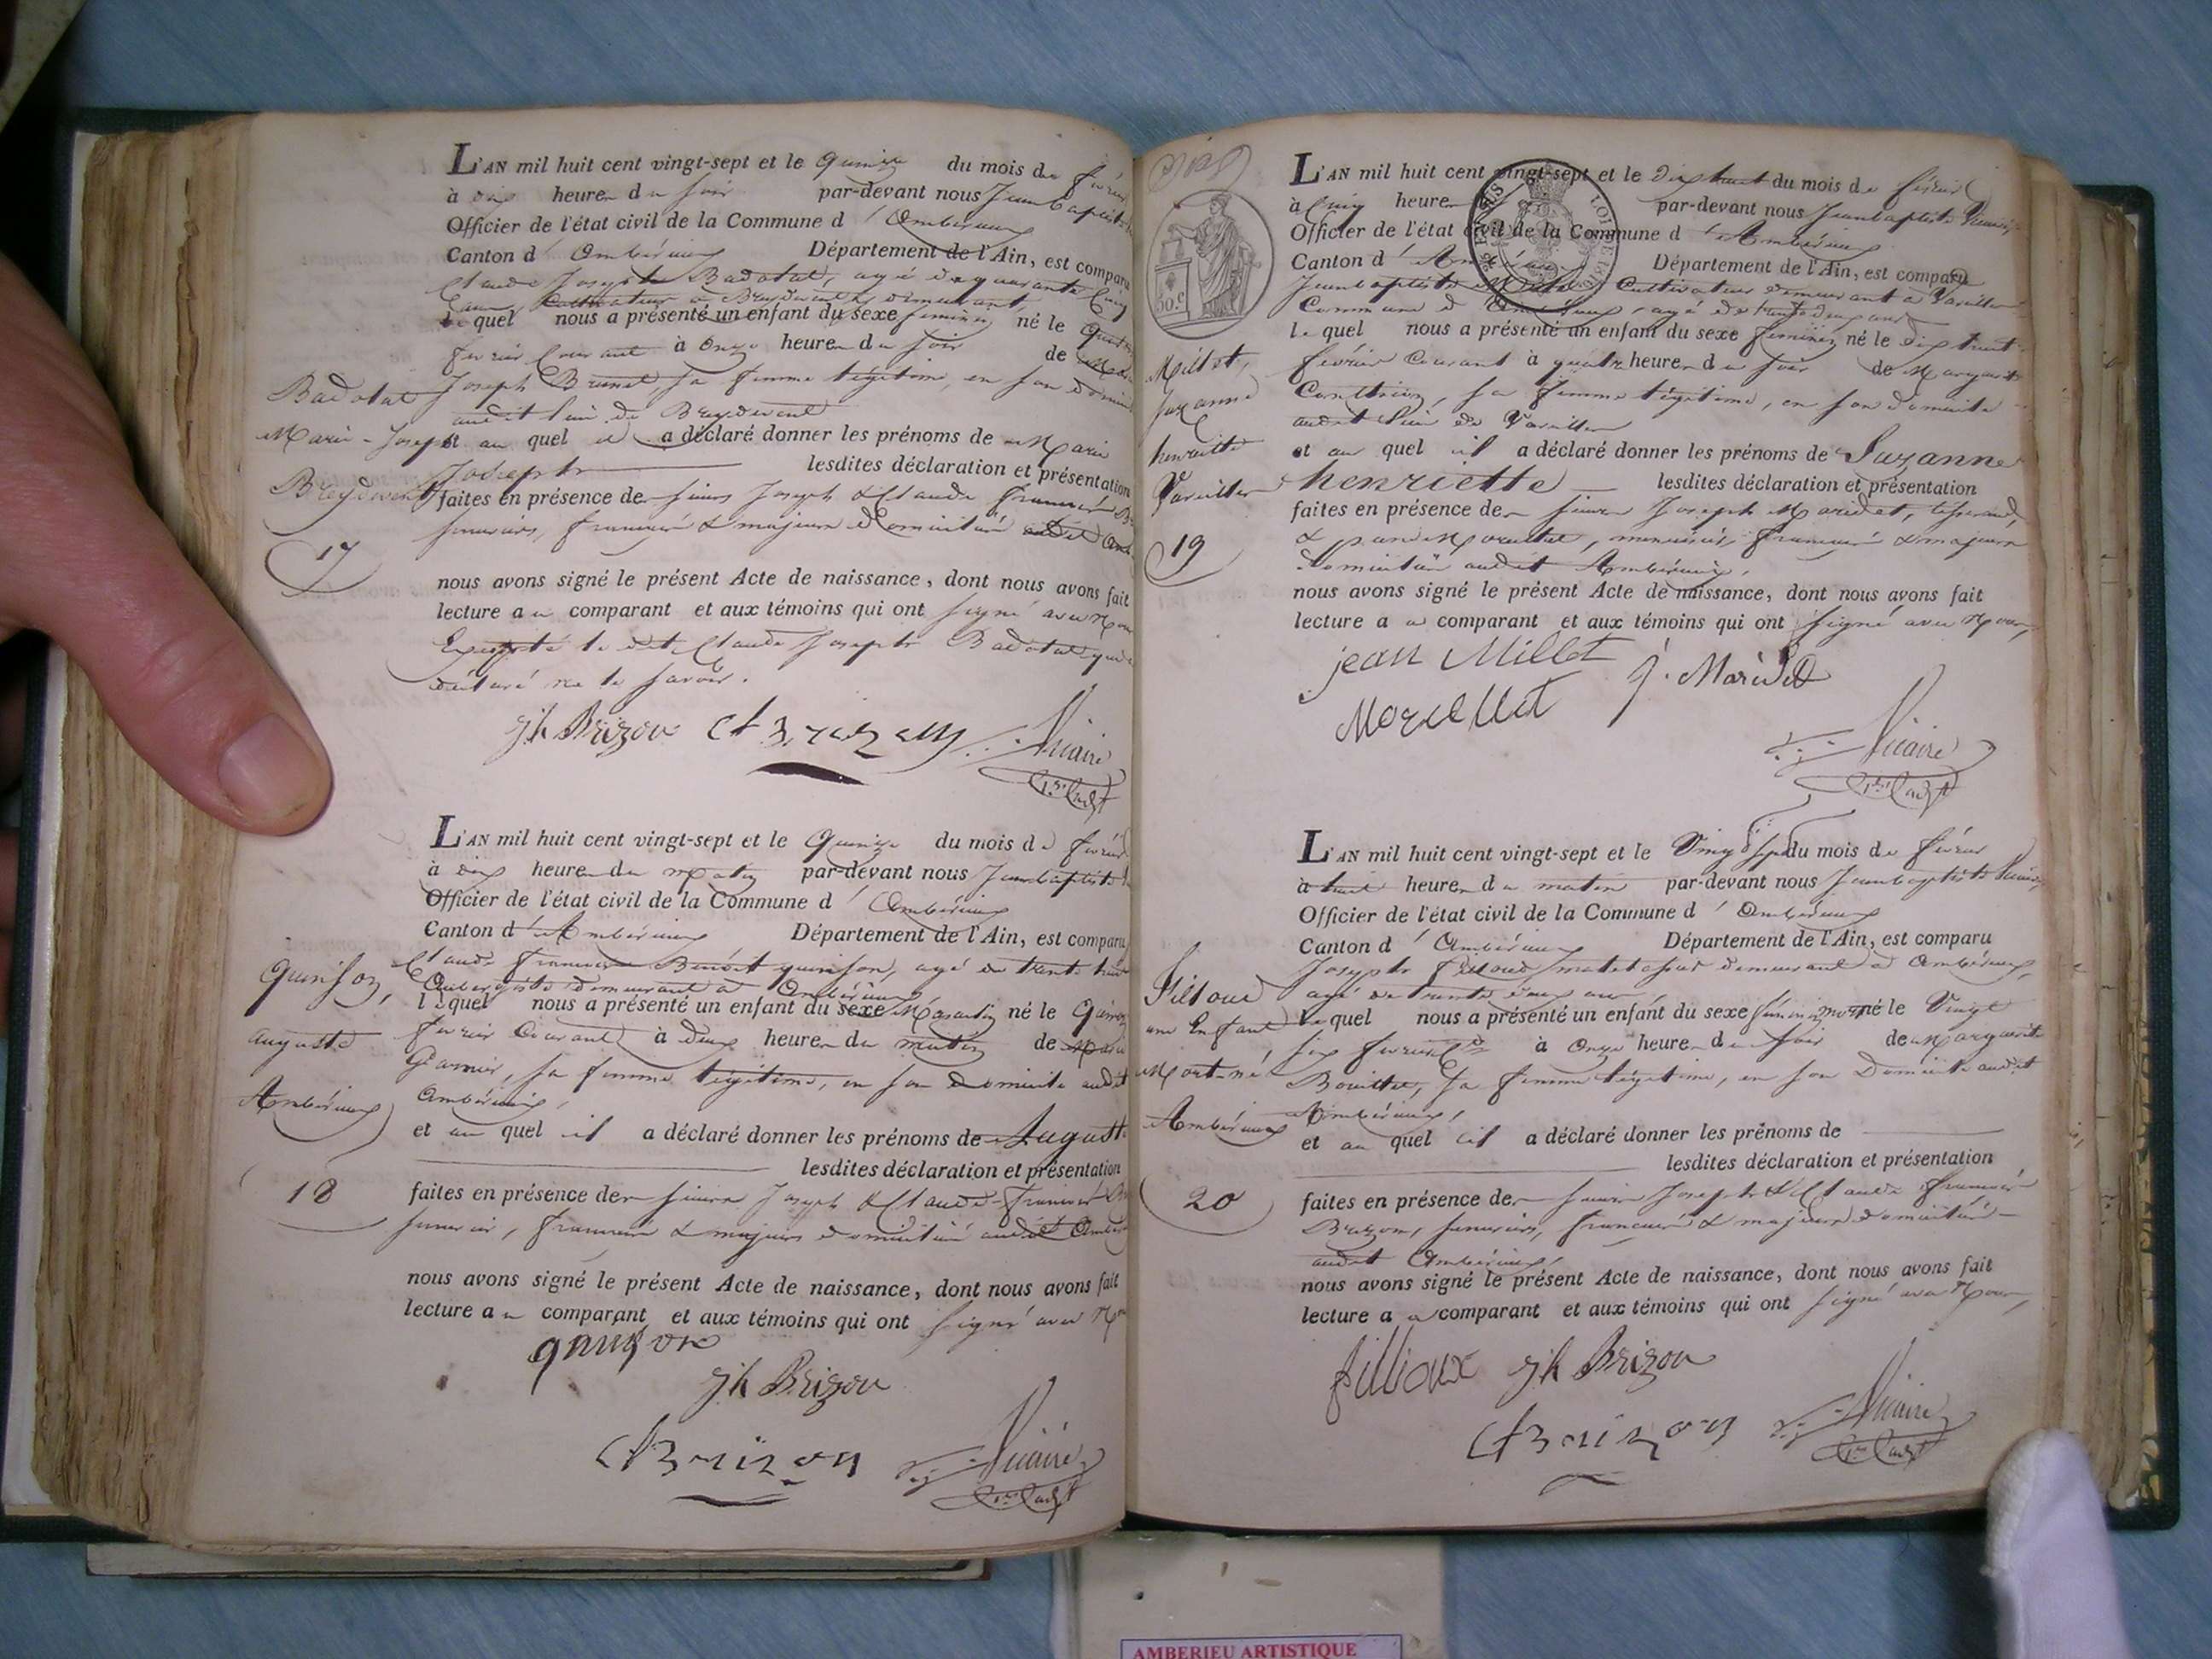 L'AN mil huit cent vingt-sept et le quinze du mois de février
à dix heures du soir par-devant nous Jean Baptiste
Officier de l'état civil de la Commune d'Ambérieux
Canton d'Ambérieux Département de l'Ain, est comparu
Claude Joseph Badotat, agé de quarante cinq
ans Cultivateur à Breydevent y demeurant,
lequel nous a présenté un enfant du sexe feminin né le
février Courant à onze heures du soir de
Joseph Brunet, sa femme légitime, en son domicile
audit lieu de Breydevent
et au quel il a déclaré donner les prénoms de Marie
Joseph lesdites déclaration et présentation
faites en présence des sieurs Joseph & Claude François
serruriers, français & majeurs domiciliés audit
nous avons signé le présent Acte de naissance, dont nous avons fait
lecture au comparant et aux témoins qui ont signé avec Nous
Excepté le dit Claude Joseph Badotat qui a
déclaré ne le savoir.
Jh Brizon Cl Brizon Vicaire
Badotat
Marie-Joseph
Breydevent
17
L'AN mil huit cent vingt-sept et le Quinze du mois de février
à dix heures du matin par-devant nous Jean baptiste
Officier de l'état civil de la Commune d'Ambérieux
Canton d'Ambérieux Département de l'Ain, est comparu
Claude François Benoit quinson, agé de trente huit
Aubergiste demeurant à Ambérieux
lequel nous a présenté un enfant du sexe Masculin né le Quinze
février Courant à deux heures du matin de Marie
Garnier, sa femme légitime, en son domicile audit
Ambérieux,
et au quel il a déclaré donner les prénoms de Auguste
lesdites déclaration et présentation
faites en présence des sieurs Joseph & Claude-François
serruriers, français & majeurs domiciliés audit
nous avons signé le présent Acte de naissance, dont nous avons fait
lecture au comparant et aux témoins qui ont signé avec Nous
quinson
Jh Brizon
Cl Brizon Vicaire
Quinson,
auguste
Ambérieux
18
L'AN mil huit cent vingt-sept et le dix huit du mois de février
à Cinq heures par-devant nous Jean baptiste Vicaire
Officier de l'état civil de la Commune d'Ambérieux
Canton d' Département de l'Ain, est comparu
Jean baptiste Cultivateur demeurant à Vareilles
Commune d'Ambérieux, agé de trente deux ans
lequel nous a présenté un enfant du sexe féminin né le dix huit
février Courant à quatre heures du soir de Marguerite
sa femme légitime, en son domicile
audit lieu de Vareilles
et au quel il a déclaré donner les prénoms de Suzanne
henriette lesdites déclaration et présentation
faites en présence des sieurs Joseph Maridet, tisserand,
& menuisier, français & majeurs
domiciliés audit Ambérieux,
nous avons signé le présent Acte de naissance, dont nous avons fait
lecture au comparant et aux témoins qui ont signé avec Nous,
jean Millet J. Maridet
Morellet
Vicaire
50 c
Millet,
Suzanne
henriette
Vareilles
19
L'AN mil huit cent vingt-sept et le Vingt sept du mois de février
à huit heures du matin par-devant nous Jean baptiste Vicaire
Officier de l'état civil de la Commune d'Ambérieux
Canton d'Ambérieux Département de l'Ain, est comparu
Joseph Filloud matelassier demeurant à Ambérieux,
agé de trente deux ans
lequel nous a présenté un enfant du sexe féminin mort né le Vingt
six février à onze heures du soir de Marguerite
sa femme légitime, en son Domicile audit
Ambérieux,
et au quel il a déclaré donner les prénoms de
lesdites déclaration et présentation
faites en présence des sieurs Joseph & Claude François
Brizon, serruriers, français & majeurs domiciliés
audit Ambérieux,
nous avons signé le présent Acte de naissance, dont nous avons fait
lecture au comparant et aux témoins qui ont signé avec Nous,
fillioux Jh Brizon
Cl Brizon Vicaire
Filloud
un Enfant
Mort-né
Ambérieux
20
AMBERIEU ARTISTIQUE